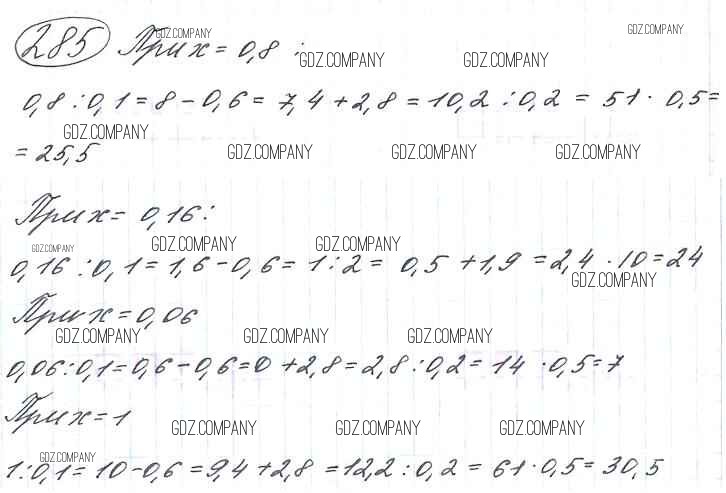 285 При х = 0,8 :
0,8 : 0,1 = 8 - 0,6 = 7,4 + 2,8 = 10,2 : 0,2 = 51 · 0,5 =
= 25,5
При х = 0,16 :
0,16 : 0,1 = 1,6 - 0,6 = 1 : 2 = 0,5 + 1,9 = 2,4 · 10 = 24
При х = 0,06
0,06 : 0,1 = 0,6 - 0,6 = 0 + 2,8 = 2,8 : 0,2 = 14 · 0,5 = 7
При х = 1
1 : 0,1 = 10 - 0,6 = 9,4 + 2,8 = 12,2 : 0,2 = 61 · 0,5 = 30,5
GDZ.COMPANY GDZ.COMPANY
GDZ.COMPANY GDZ.COMPANY
GDZ.COMPANY
GDZ.COMPANY GDZ.COMPANY GDZ.COMPANY
GDZ.COMPANY GDZ.COMPANY GDZ.COMPANY
GDZ.COMPANY
GDZ.COMPANY GDZ.COMPANY GDZ.COMPANY
GDZ.COMPANY GDZ.COMPANY GDZ.COMPANY
GDZ.COMPANY